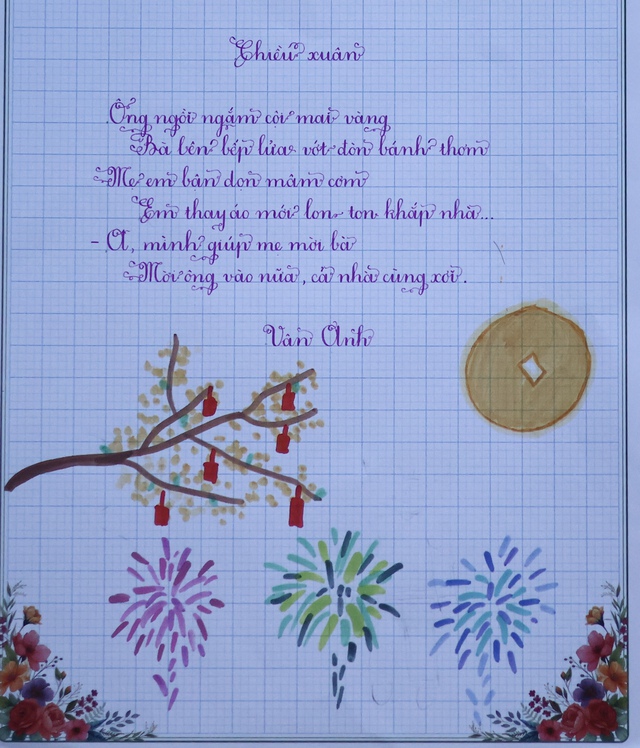 Chiều xuân
Ông ngồi ngắm cội mai vàng
Bà bên bếp lửa vớt đòn bánh thơm
Mẹ em bận dọn mâm cơm
Em thay áo mới lon ton khắp nhà...
- A, mình giúp mẹ mời bà
Mời ông vào nữa, cả nhà cùng xơi.
Vân Anh